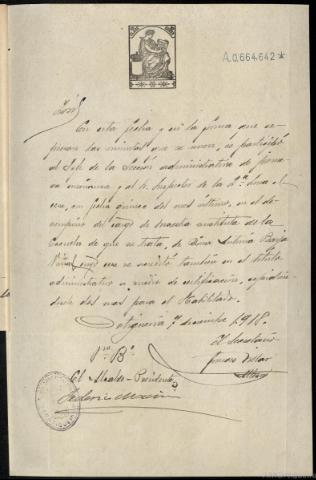 A.0.664.642*
En esta fecha y en la forma que ex-
presan las minutas que se unen, se participó
al Jefe de la Sección administrativa de prime-
ra enseñanza y al Sr. Inspector de la 2ª Zona el
cese, en fecha quince del mes último, en el de-
sempeño del cargo de maestra sustituta de la
Escuela de que se trata, de Dona
que se acreditó también en el título
administrativo a medio de certificación, expidién-
dosele dos mas para el Habilitado.
Ortigueira 7 diciembre 1918.
El Secretario
Vto. Bº
El Alcalde-Presidente